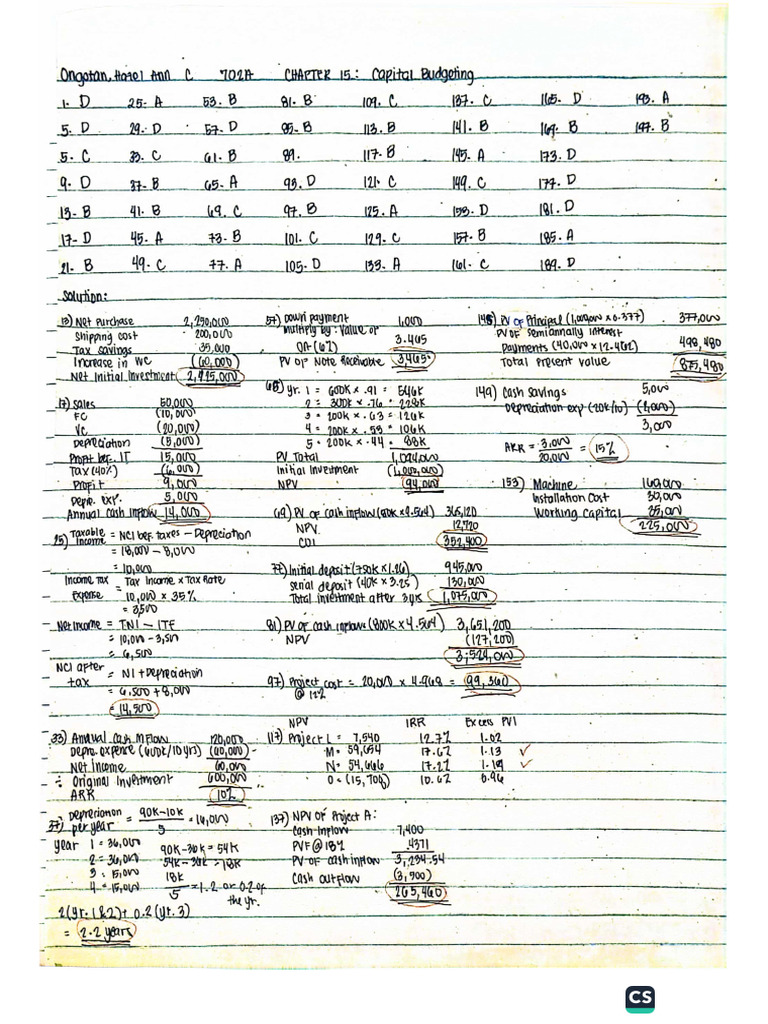 Ongotan, Hazel Ann C 702A CHAPTER 15: Capital Budgeting
1. D 25. A 53. B 81. B 109. C 137. C 165. D 193. A
5. D 29. D 57. D 85. B 113. B 141. B 169. B 197. B
5. C 33. C 61. B 89. 117. B 145. A 173. D
9. D 37. B 65. A 93. D 121. C 149. C 177. D
13. B 41. B 69. C 97. B 125. A 153. D 181. D
17. D 45. A 73. B 101. C 129. C 157. B 185. A
21. B 49. C 77. A 105. D 133. A 161. C 189. D
Solution:
13) Net Purchase 2,250,000
Shipping cost 200,000
Tax savings 35,000
Increase in WC (60,000)
Net Initial Investment
17) Sales 50,000
FC (10,000)
VC (20,000)
Depreciation (5,000)
Profit bef. IT 15,000
Tax (40%) (6,000)
Profit 9,000
Depre. Exp. 5,000
Annual cash inflow 14,000
25) Taxable Income = NCI bef. taxes - Depreciation
= 18,000 - 8,000
= 10,000
Income tax Expense = Tax Income x Tax Rate
= 10,000 x 35%
= 3,500
Net Income = TNI - ITE
= 10,000 - 3,500
= 6,500
NCI after tax = NI + Depreciation
= 6,500 + 8,000
= 14,500
33) Annual Cash Inflow 120,000
Depre. expense (600K/10 yrs) (60,000)
Net Income 60,000
÷ Original Investment 600,000
ARR 10%
37) Depreciation per year = 90K-10K / 5 = 16,000
Year 1 = 36,000 90K-36K = 54K
2 = 36,000 54K-36K = 18K
3 = 15,000 18K
4 = 15,000 5 = 1.2 or 0.2 of the yr.
2 (yr. 1 & 2) + 0.2 (yr. 3)
= 2.2 years
57) Down payment 1,000
Multiply by: Value of OA (6%) 3.465
PV of Note Receivable 3,465
65) Yr. 1 = 600K x .91 = 546K
2 = 300K x .76 = 228K
3 = 200K x .63 = 126K
4 = 200K x .53 = 106K
5 = 200K x .44 = 88K
PV Total 1,094,000
Initial Investment (1,000,000)
NPV 94,000
69) PV of cash inflow (80K x 4.564) 365,120
NPV 12,720
COI 352,400
77) Initial deposit (750K x 1.26) 945,000
Serial deposit (40K x 3.25) 130,000
Total investment after 3 yrs 1,075,000
81) PV of cash inflow (800K x 4.564) 3,651,200
NPV (127,200)
3,524,000
97) Project cost = 20,000 x 4.968 = 99,360
@ 12%
NPV IRR Excess PVI
117) Project L = 7,540 12.7% 1.02
M = 59,654 17.6% 1.13 ✓
N = 54,666 17.2% 1.19 ✓
O = (15,700) 10.6% 0.96
137) NPV of Project A:
Cash Inflow 7,400
PVF @ 18% .4371
PV of cash inflow 3,234.54
Cash outflow (3,500)
265,460
145) PV of Principal (1,000,000 x 0.377) 377,000
PV of semiannually interest
Payments (40,000 x 12.462) 498,480
Total Present Value 875,480
149) Cash savings 5,000
Depreciation exp (20K/10) (2,000)
3,000
ARR = 3,000 / 20,000 = 15%
153) Machine 160,000
Installation Cost 30,000
Working capital 35,000
225,000
CS